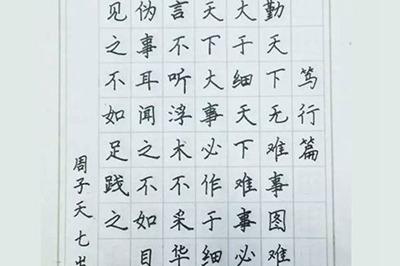 笃行篇
勤天下无难事图难
大于细天下难事必
天下大事必作于细
言不听浮术不采华
伪事耳闻之不如目
见之不如足践之
周子天七岁